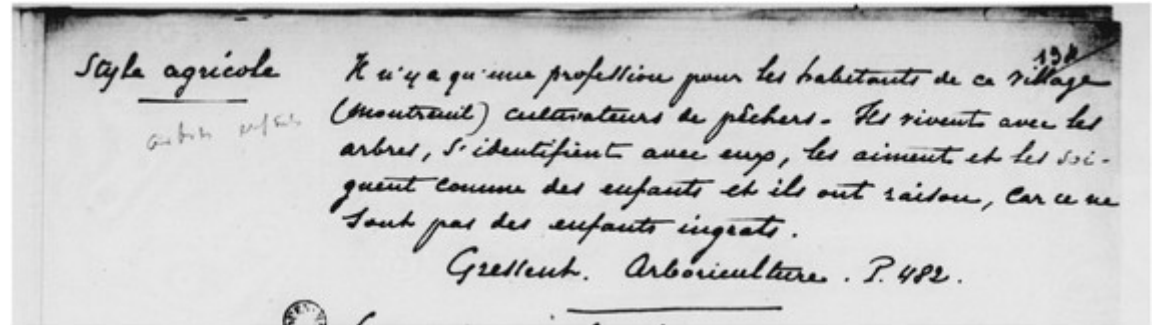 194
Style agricole
Il n'y a qu'une profession pour les habitants de ce village
(Montreuil) cultivateurs de pêchers. Ils vivent avec les
arbres, s'identifient avec eux, les aiment et les soi-
gnent comme des enfants et ils ont raison, car ce ne
sont pas des enfants ingrats.
Gressent. Arboriculture. P. 482.